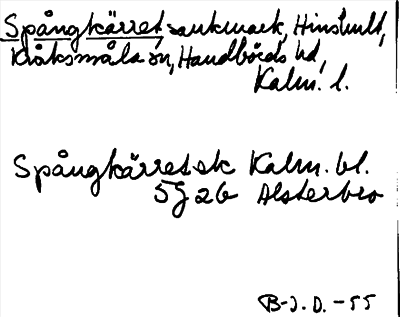 Spångkärret, sankmark, Hinshult,
Kråksmåla sn, Handbörds hd,
Kalm. l.
Spångkärret sk Kalm. bl.
5G 2b Alsterbro
B-J.D. -55